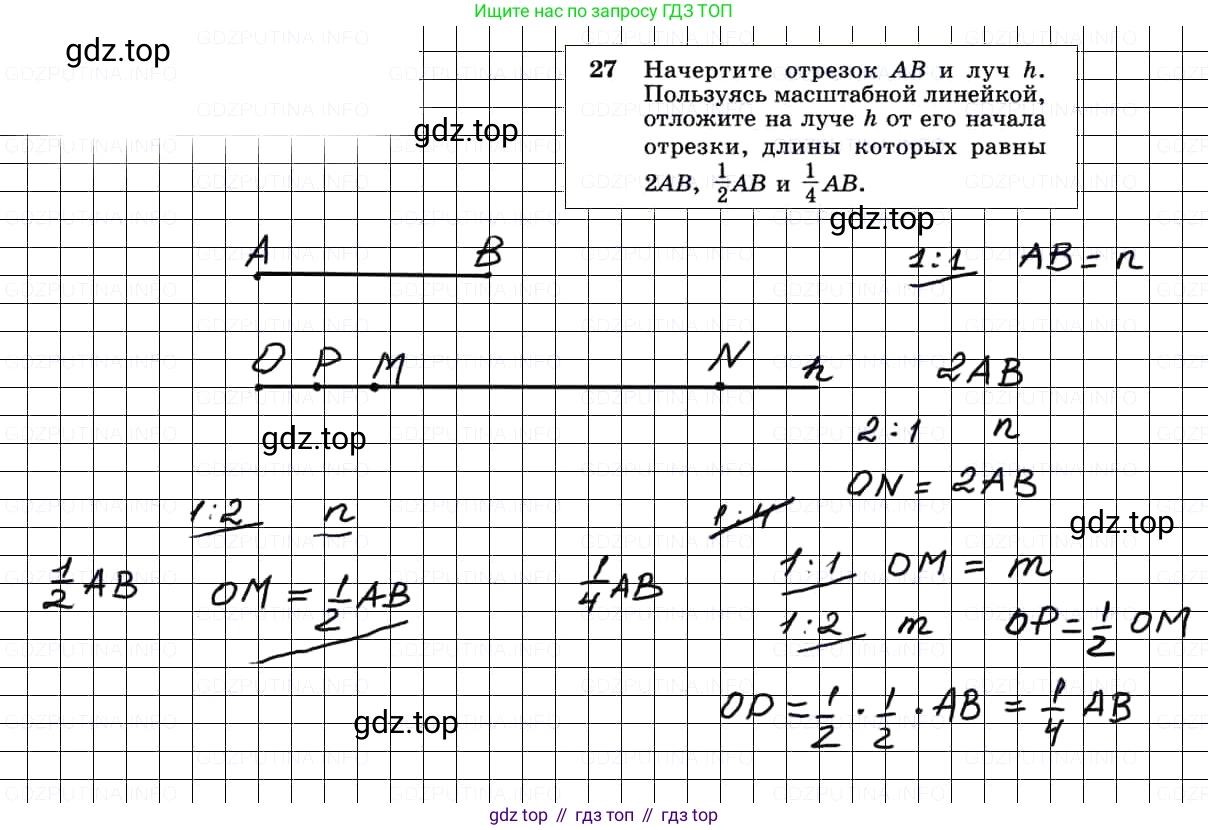 Ищите нас по запросу ГДЗ ТОП
gdz.top
27 Начертите отрезок AB и луч h.
Пользуясь масштабной линейкой,
отложите на луче h от его начала
отрезки, длины которых равны
2AB, 1/2 AB и 1/4 AB.
gdz.top
gdz.top
A B
1:1 AB = n
O P M N h
2AB
2:1 n
gdz.top
ON = 2AB
1:2 n
1:4
gdz.top
1/2 AB OM = 1/2 AB
1/4 AB
1:1 OM = m
1:2 m OP = 1/2 OM
OP = 1/2 · 1/2 · AB = 1/4 AB
gdz.top
gdz top // гдз топ // gdz top
GDZPUTINA.INFO